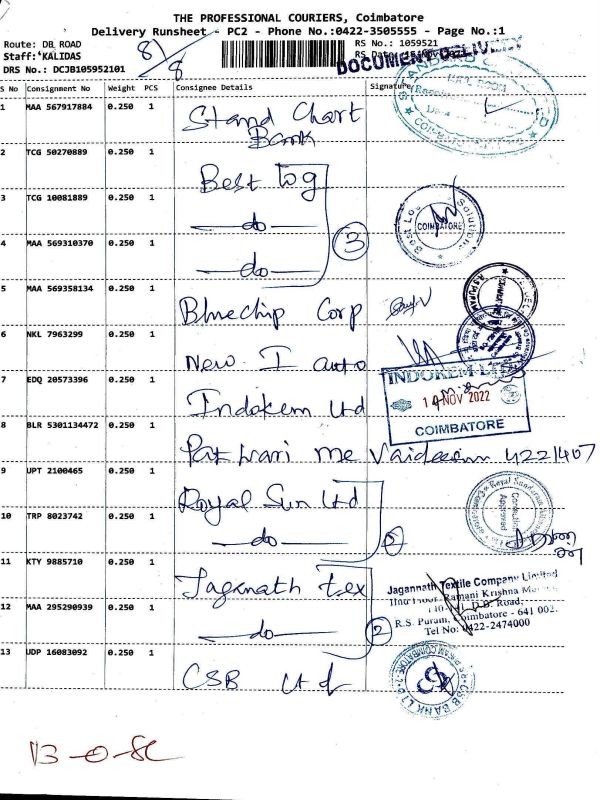 THE PROFESSIONAL COURIERS, Coimbatore
Delivery Runsheet - PC2 - Phone No.:0422-3505555 - Page No.:1
Route: DB ROAD
RS No.: 1059521
Staff: KALIDAS
8/8
DRS No.: DCJB105952101
DOCUMENT DELIVERY
S No Consignment No Weight PCS Consignee Details Signature
1 MAA 567917884 0.250 1 Stand Chart
Bank
2 TCG 50270889 0.250 1 Best Log
3 TCG 10081889 0.250 1 do
COIMBATORE
4 MAA 569310370 0.250 1 do
3
5 MAA 569358134 0.250 1 Bluechip Corp
6 NKL 7963299 0.250 1 New I auto
7 EDQ 20573396 0.250 1 Indokem Ltd
INDOKEM LTD
NOV 2022
COIMBATORE
8 BLR 5301134472 0.250 1
9 UPT 2100465 0.250 1 Royal Sun Ltd
10 TRP 8023742 0.250 1 do
11 KTY 9885710 0.250 1 Jaganath tex
Jagannath Textile Company Limited
Ramani Krishna
D.B. Road,
R.S. Puram, Coimbatore - 641 002.
Tel No: 0422-2474000
12 MAA 295290939 0.250 1 do
2
13 UDP 16083092 0.250 1 CSB Ltd
CSB BANK LTD